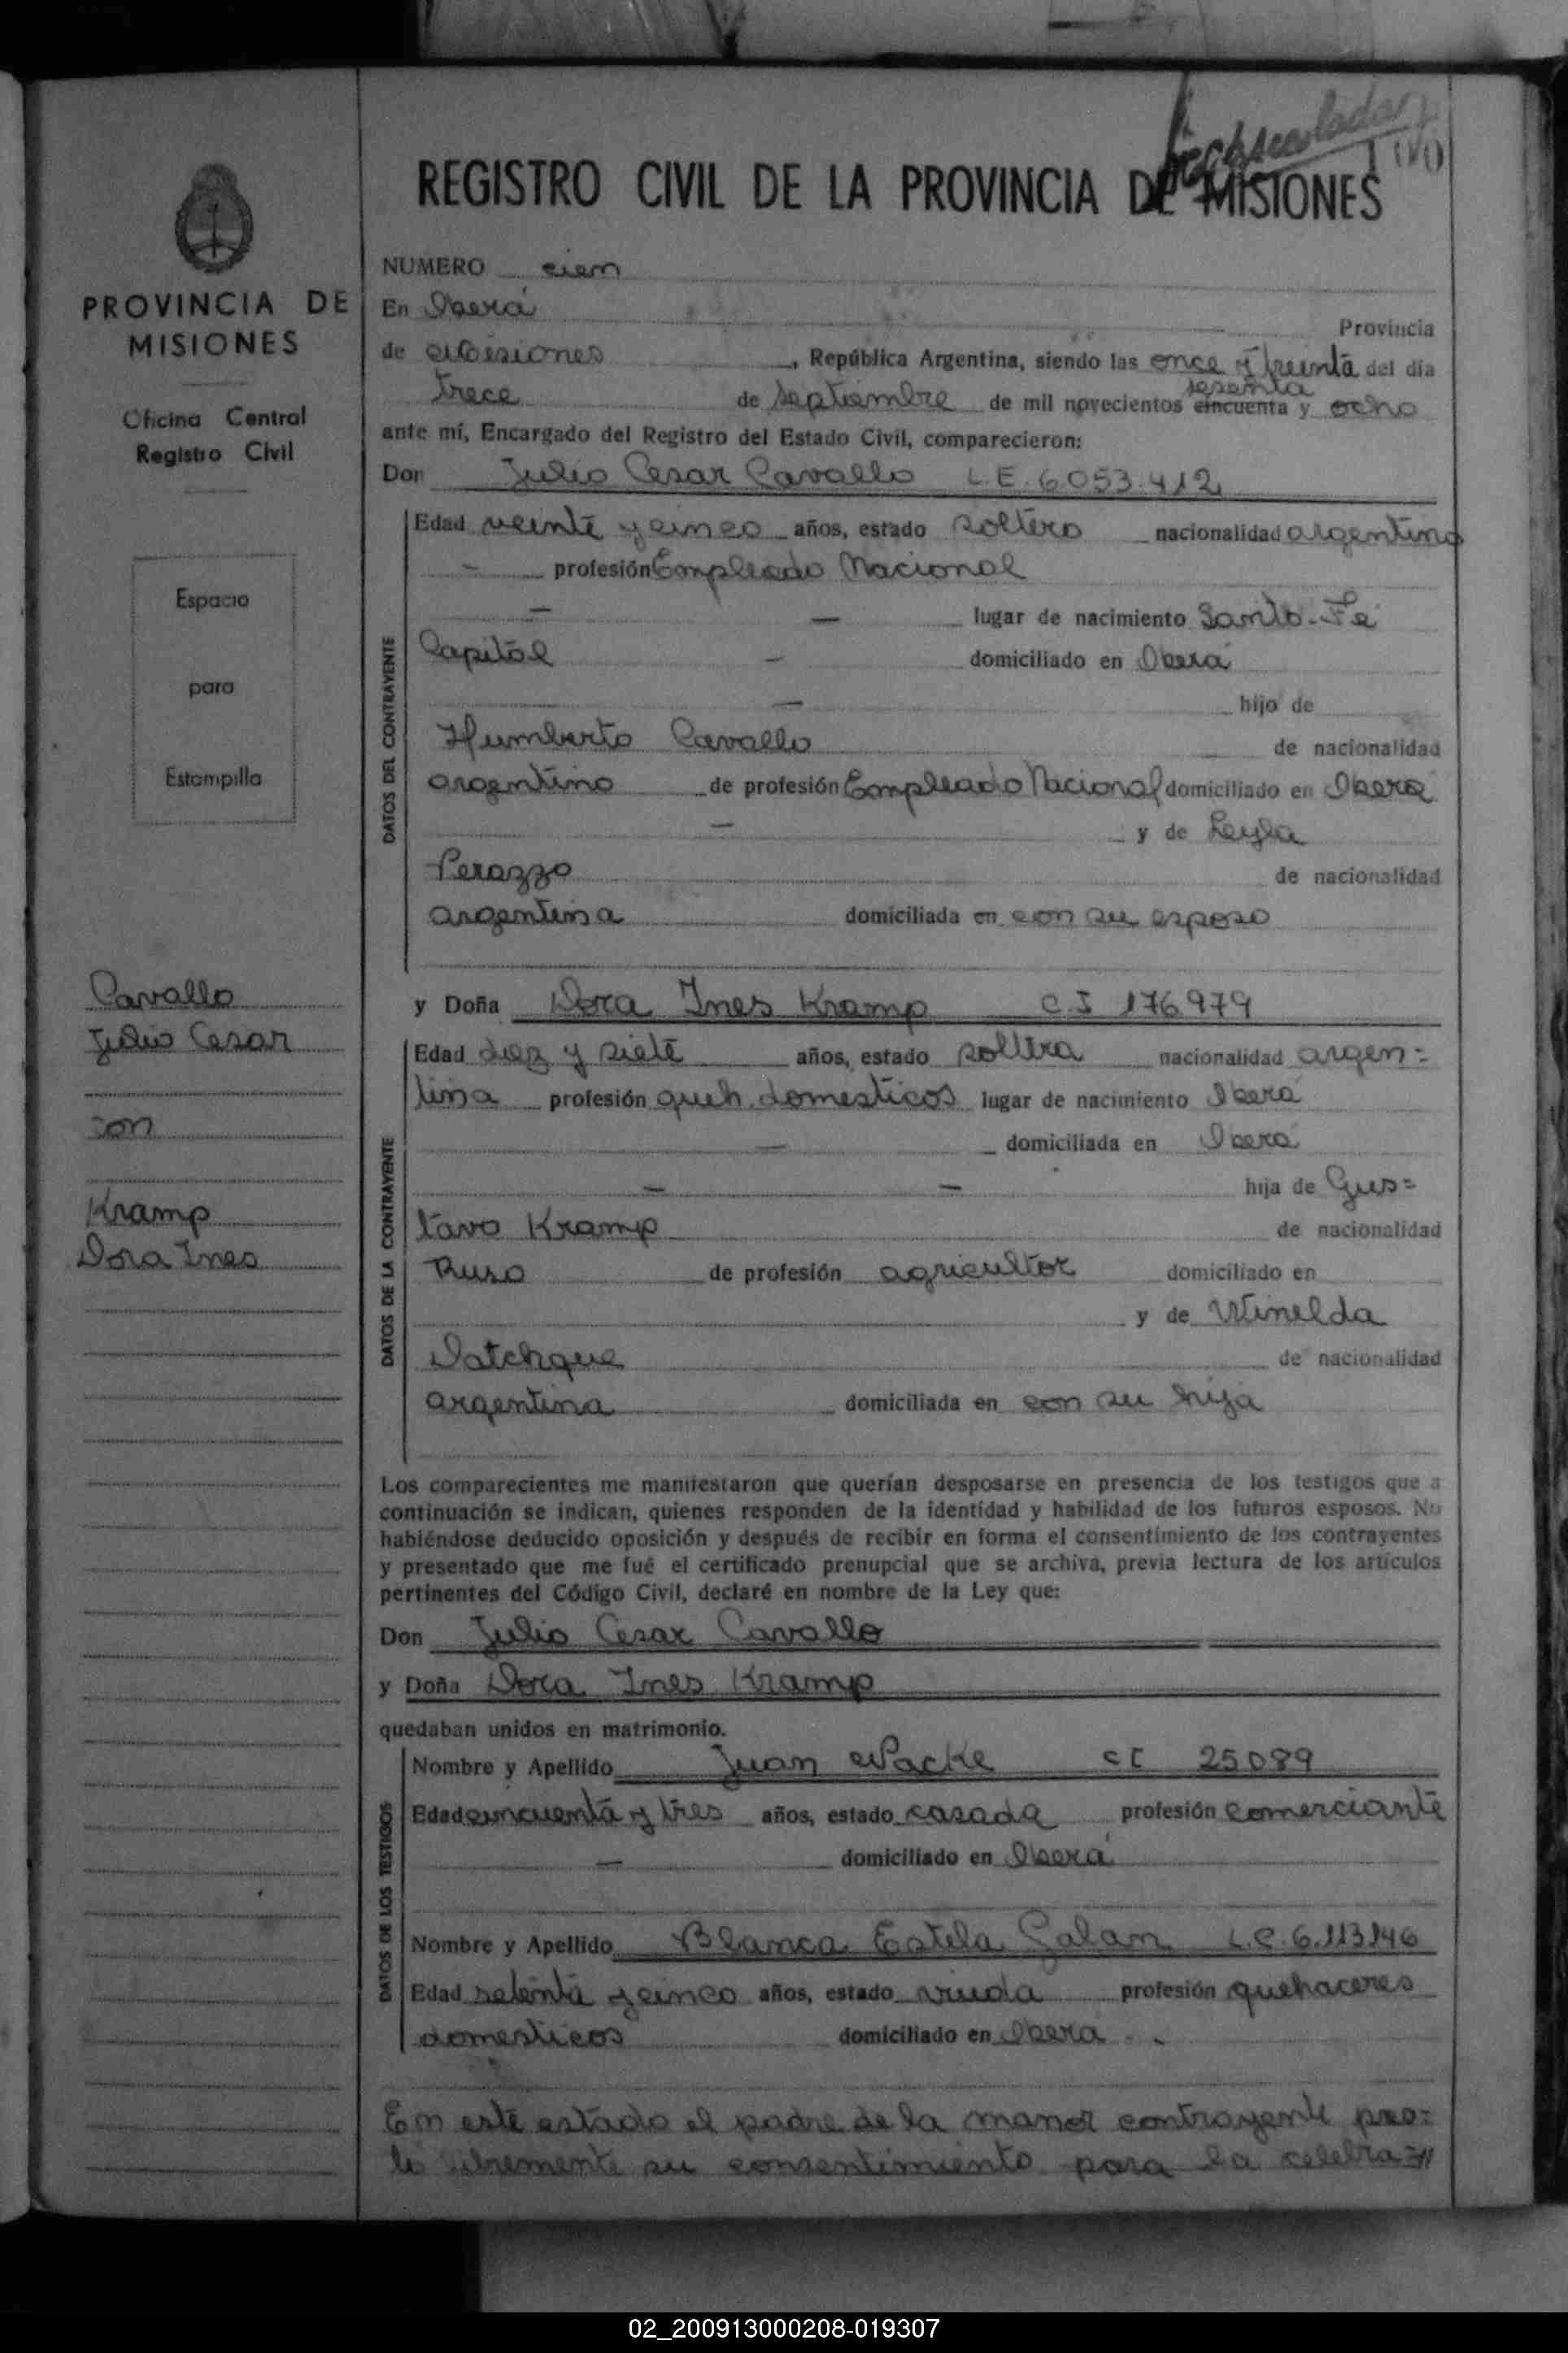 PROVINCIA DE
MISIONES
Oficina Central
Registro Civil
Espacio
para
Estampilla
Cavallo
Julio Cesar
con
Kramp
Dora Ines
REGISTRO CIVIL DE LA PROVINCIA DE MISIONES
NUMERO cien
En Oberá Provincia
de Misiones, República Argentina, siendo las once y treinta del día
trece de septiembre de mil novecientos sesenta cincuenta y ocho
ante mí, Encargado del Registro del Estado Civil, comparecieron:
Don Julio Cesar Cavallo L.E. 6.053.412
DATOS DEL CONTRAYENTE
Edad veinte y cinco años, estado soltero nacionalidad argentino
- profesión Empleado Nacional
- - lugar de nacimiento Santo-Fé
Capital - domiciliado en Oberá
- hijo de
Humberto Cavallo de nacionalidad
argentino de profesión Empleado Nacional domiciliado en Oberá
- y de Leyla
Perazzo de nacionalidad
argentina domiciliada en con su esposo
y Doña Dora Ines Kramp C.I 176979
DATOS DE LA CONTRAYENTE
Edad diez y siete años, estado soltera nacionalidad argen=
tina profesión queh. domesticos lugar de nacimiento Oberá
- domiciliada en Oberá
- - hija de Gus=
tavo Kramp de nacionalidad
Ruso de profesión agricultor domiciliado en
y de Winelda
Datchque de nacionalidad
argentina domiciliada en con su hija
Los comparecientes me manifestaron que querían desposarse en presencia de los testigos que a
continuación se indican, quienes responden de la identidad y habilidad de los futuros esposos. No
habiéndose deducido oposición y después de recibir en forma el consentimiento de los contrayentes
y presentado que me fué el certificado prenupcial que se archiva, previa lectura de los artículos
pertinentes del Código Civil, declaré en nombre de la Ley que:
Don Julio Cesar Cavallo
y Doña Dora Ines Kramp
quedaban unidos en matrimonio.
DATOS DE LOS TESTIGOS
Nombre y Apellido Juan Packe CI 25089
Edad cincuenta y tres años, estado casada profesión comerciante
- domiciliado en Oberá
Nombre y Apellido Blanca Estela Galan L.C. 6.113.146
Edad setenta y cinco años, estado viuda profesión quehaceres
domesticos domiciliado en Oberá
En este estado el padre de la menor contrayente pres=
to libremente su consentimiento para la celebra=//
02_200913000208-019307